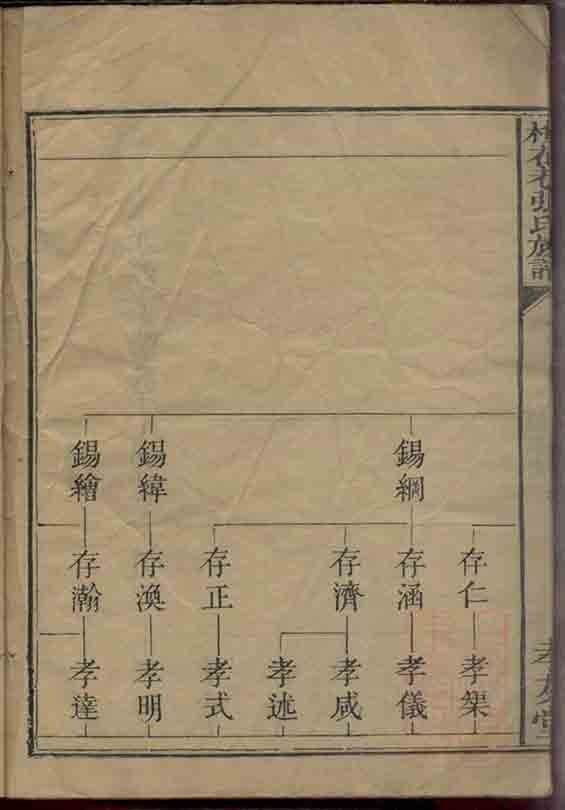 張氏族譜
錫綱
錫緯
錫繪
存仁
存涵
存濟
存正
存渙
存瀚
孝榘
孝儀
孝咸
孝述
孝式
孝明
孝達
孝友堂